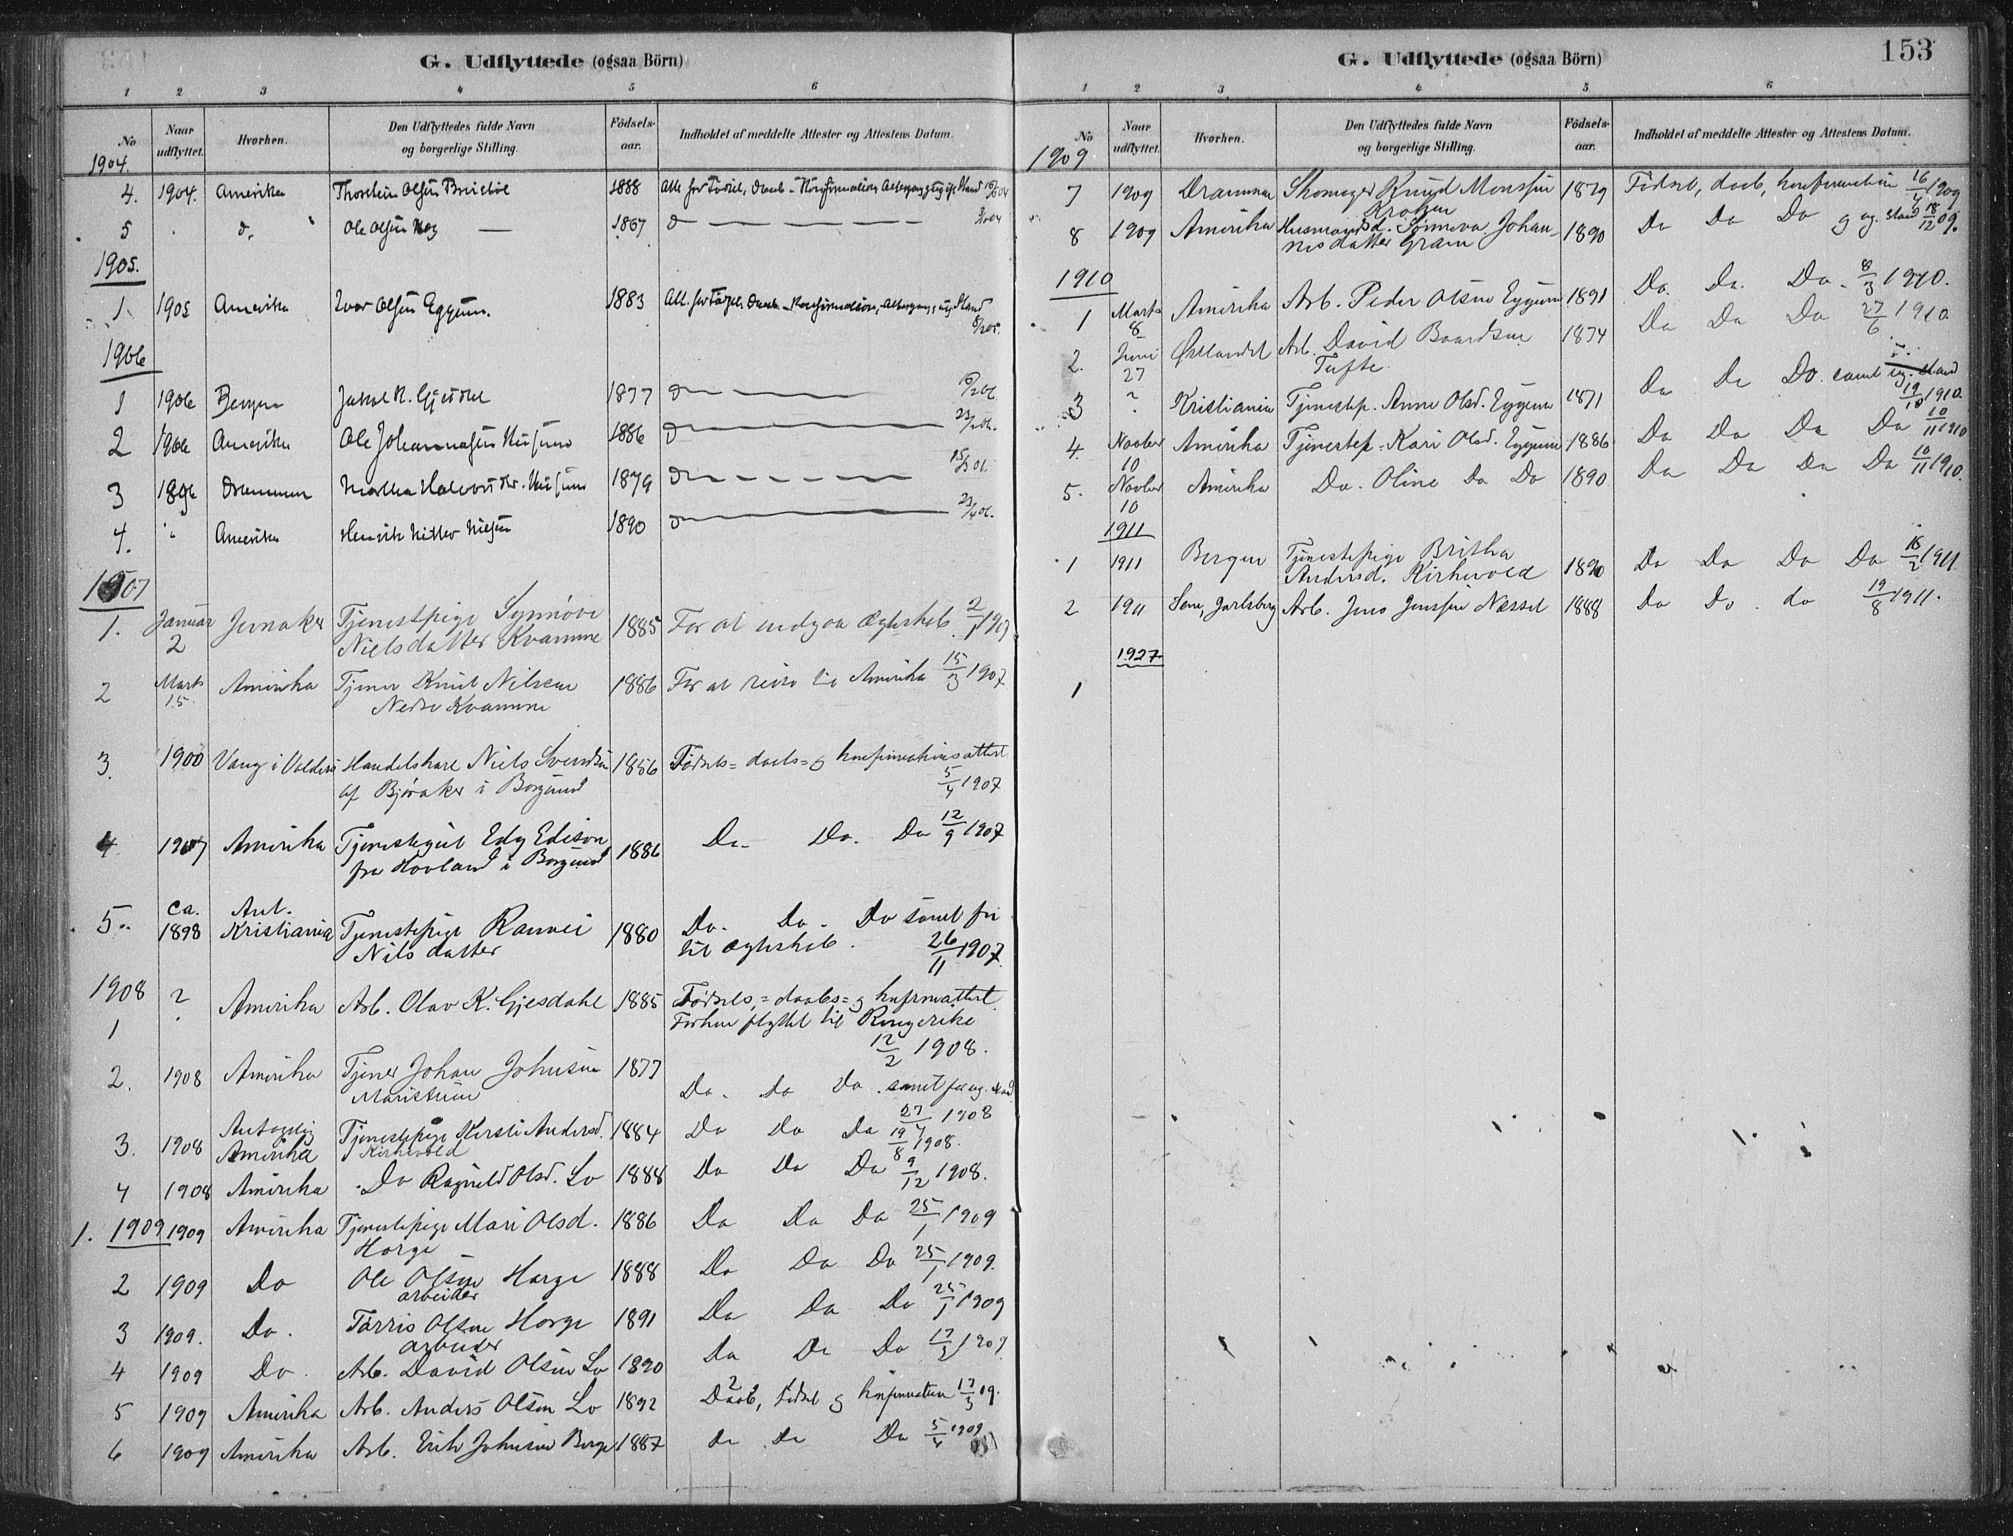 G. Udflyttede (ogsaa Börn)
1 2 3 4 5 6
No
Naar udflyttet.
Hvorhen.
Den Udflyttedes fulde Navn og borgerlige Stilling.
Fødsels-aar.
Indholdet af meddelte Attester og Attestens Datum.
1904.
4. 1904. Amerika Thorstein Olsen 1888 Att. for Fødsel, Daab, Konfirmation
5 " d. Ole Olsen 1867 d
1905.
1 1905 Amerika Ivar Olsen Eggum. 1883 Att. for Fødsel, Daab, Konfirmation
1906
1 1906 Bergen Jakob K. Gjesdal 1877 d
2 1906 Amerika Ole Johannesen Husum 1886 d
3 1896 Drammen Martha Halvorsdtr. Husum 1879 d
4. " Amerika Henrik Nielsen 1890 d
1907
1. Januar 2 Jevnaker Tjenestpige Synnøve 1885 For at indgaa Ægteskab. 2/1 1907
Nielsdatter Kvamme
2 Marts 15. Amerika Tjener Knut Nilsen 1886 For at reise til Amerika 15/3 1907
Nedre Kvamme
3. 1900 Vang i Valders Handelskarl Niels Svendsen 1856 Fødsels= daabs= og konfirmationsattest
af Bjøraker i Borgund 5/4 1907
4 1907 Amerika Tjenestegut Edy Edison 1886 Do Do. Do 12/9 1907
fra Hovland i Borgund
5. ca. 1898 Ant. Kristiania Tjenestepige Rannei 1880 Do. Do. Do samt fri
Nilsdatter til Ægteskab. 26/11 1907.
1908
1 ? Amerika Arb. Olav K. Gjesdahl 1885 Fødsels,= daabs= og konfrmattest.
Forhen flyttet til Ringerike
12/2 1908.
2. 1908 Amerika Tjener Johan Johnsen 1877 Do. Do Do. samt for ug. stand
Maristuen 27/4 1908
3. 1908 Antagelig Amerika Tjenestepige Kirsti Andersd. 1884 Do Do Do 19/8 1908.
Kirkevold
4 1908 Amerika Do Ragnild Olsd. Lo 1888 Do Do Do 9/12 1908.
1. 1909 1909 Amerika Tjenestepige Mari Olsd. 1886 Do Do Do 25/1 1909
Horge
2 1909 Do Ole Olsen Horge 1888 Do Do Do 25/1 1909.
arbeider
3 1909. Do. Tørris Olsen Horge 1891 Do Do Do 25/1 1909
arbeider
4 1909 Do. Arb. David Olsen Lo 1890 Do Do Do 17/3 1909
5 1909 Amerika Arb. Anders Olsen Lo 1892 Daab, fødsel og konfirmation 17/3 09.
6 1909 Amerika Arb. Erik Johnsen Berge 1887 do do Do 5/4 1909
G. Udflyttede (ogsaa Börn)
153
1 2 3 4 5 6
No
Naar udflyttet.
Hvorhen.
Den Udflyttedes fulde Navn og borgerlige Stilling.
Fødsels-aar.
Indholdet af meddelte Attester og Attestens Datum.
1909
7 1909 Drammen Skomager Knud Monssen 1879 Fødsel, daab, konfirmation 16/4 1909
8 1909 Amerika Husmandsd. Synneva Johan- 1890 Do Do Do og ug. stand 18/12 09.
nesdatter Gram
1910
1 Marts 8 Amerika Arb. Peder Olsen Eggum 1891 Do Do. Do. 8/3 1910.
2. Juni 27 Østlandet Arb. David Baardsen 1874 Do Do Do 27/6 1910
Tufte.
3 ? Kristiania Tjenestep. Anne Olsd. Eggum 1871 Do Do Do. samt ug. stand
19/10 1910.
4. Novber 10 Amerika Tjenestep. Kari Olsd. Eggum 1886 Do Do Do Do 10/11 1910
5. Novber 10 Amerika Do. Oline Do Do 1890 Do Do Do Do 10/11 1910.
1911
1 1911 Bergen Tjenestepige Britha 1890 Do Do Do Do 18/2 1911.
Andersd. Kirkevold
2 1911 Sem, Jarlsberg Arb. Jens Jenssen Nesset 1888 Do Do. do 19/8 1911.
1927
1